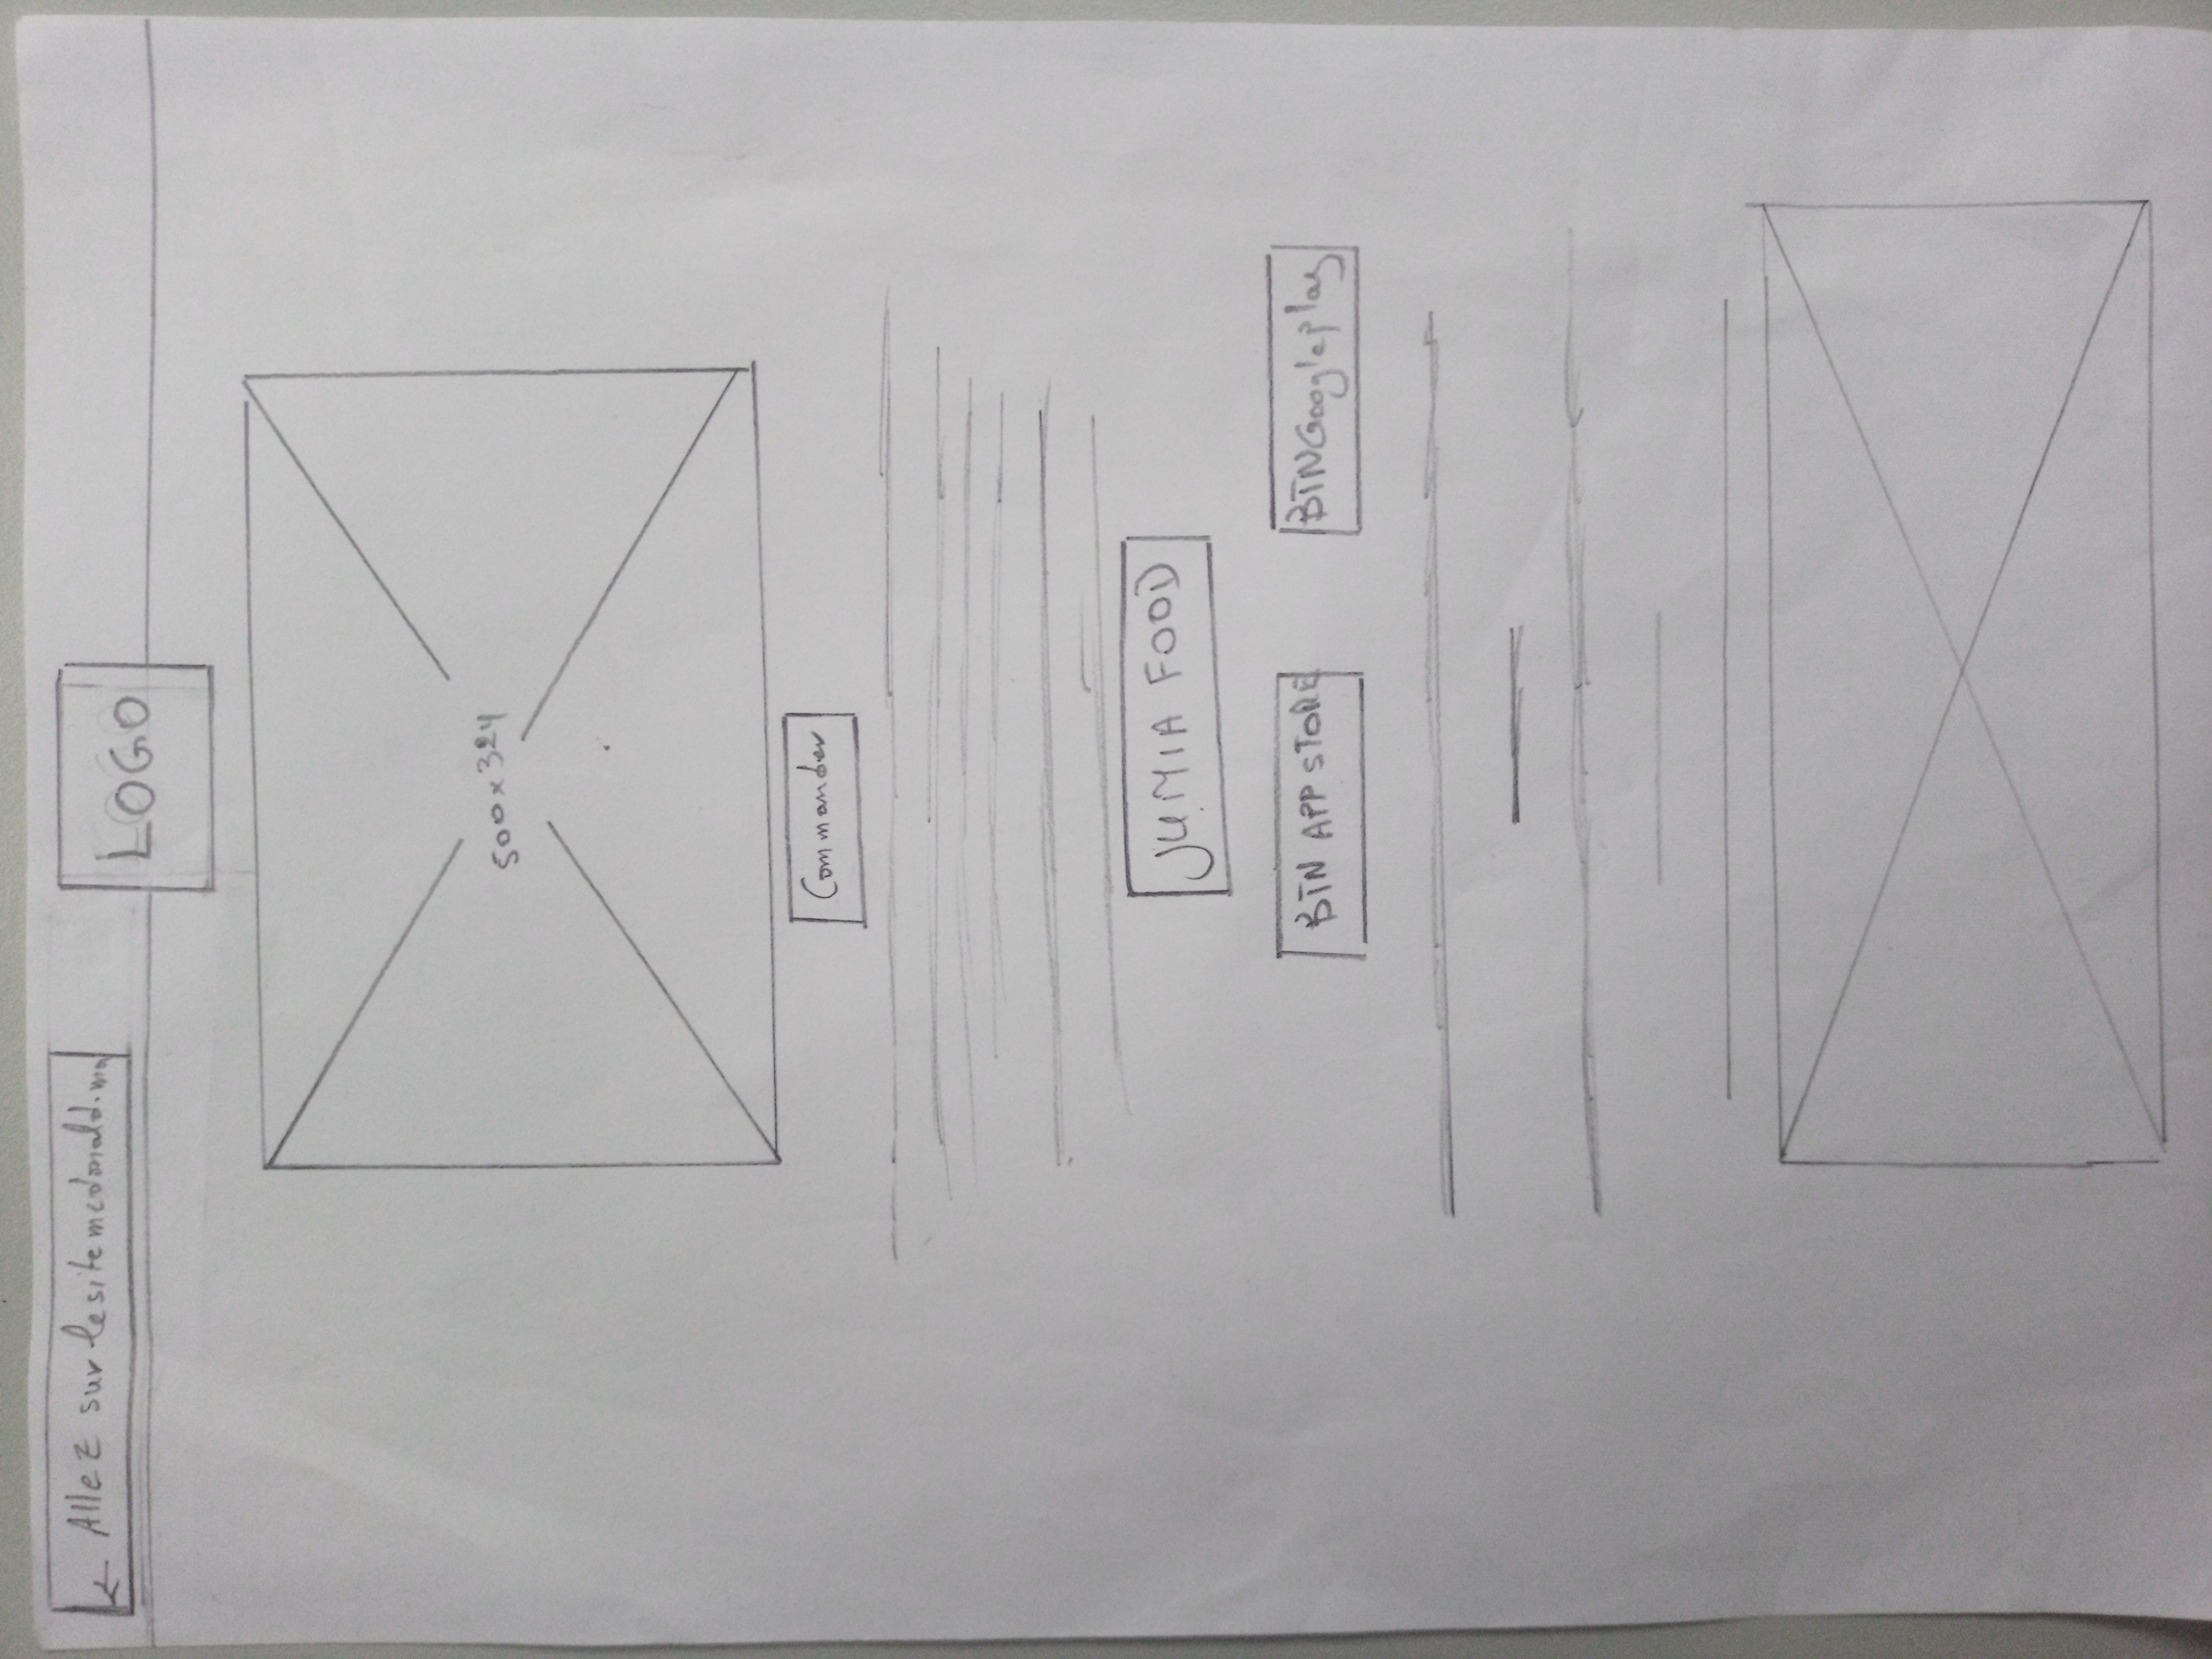 ← Allez sur le site mcdonald.ma
LOGO
500x324
Commander
JUMIA FOOD
BTN APP STORE
BTN Google play